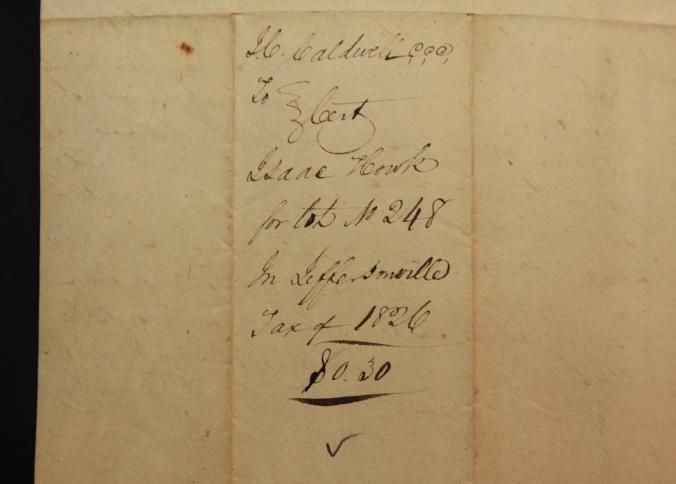 I.C. Caldwell CCC,
To } Cert
Isaac Howk
for lot No 248
In Jeffersonville
Tax of 1826
$0.30
✓